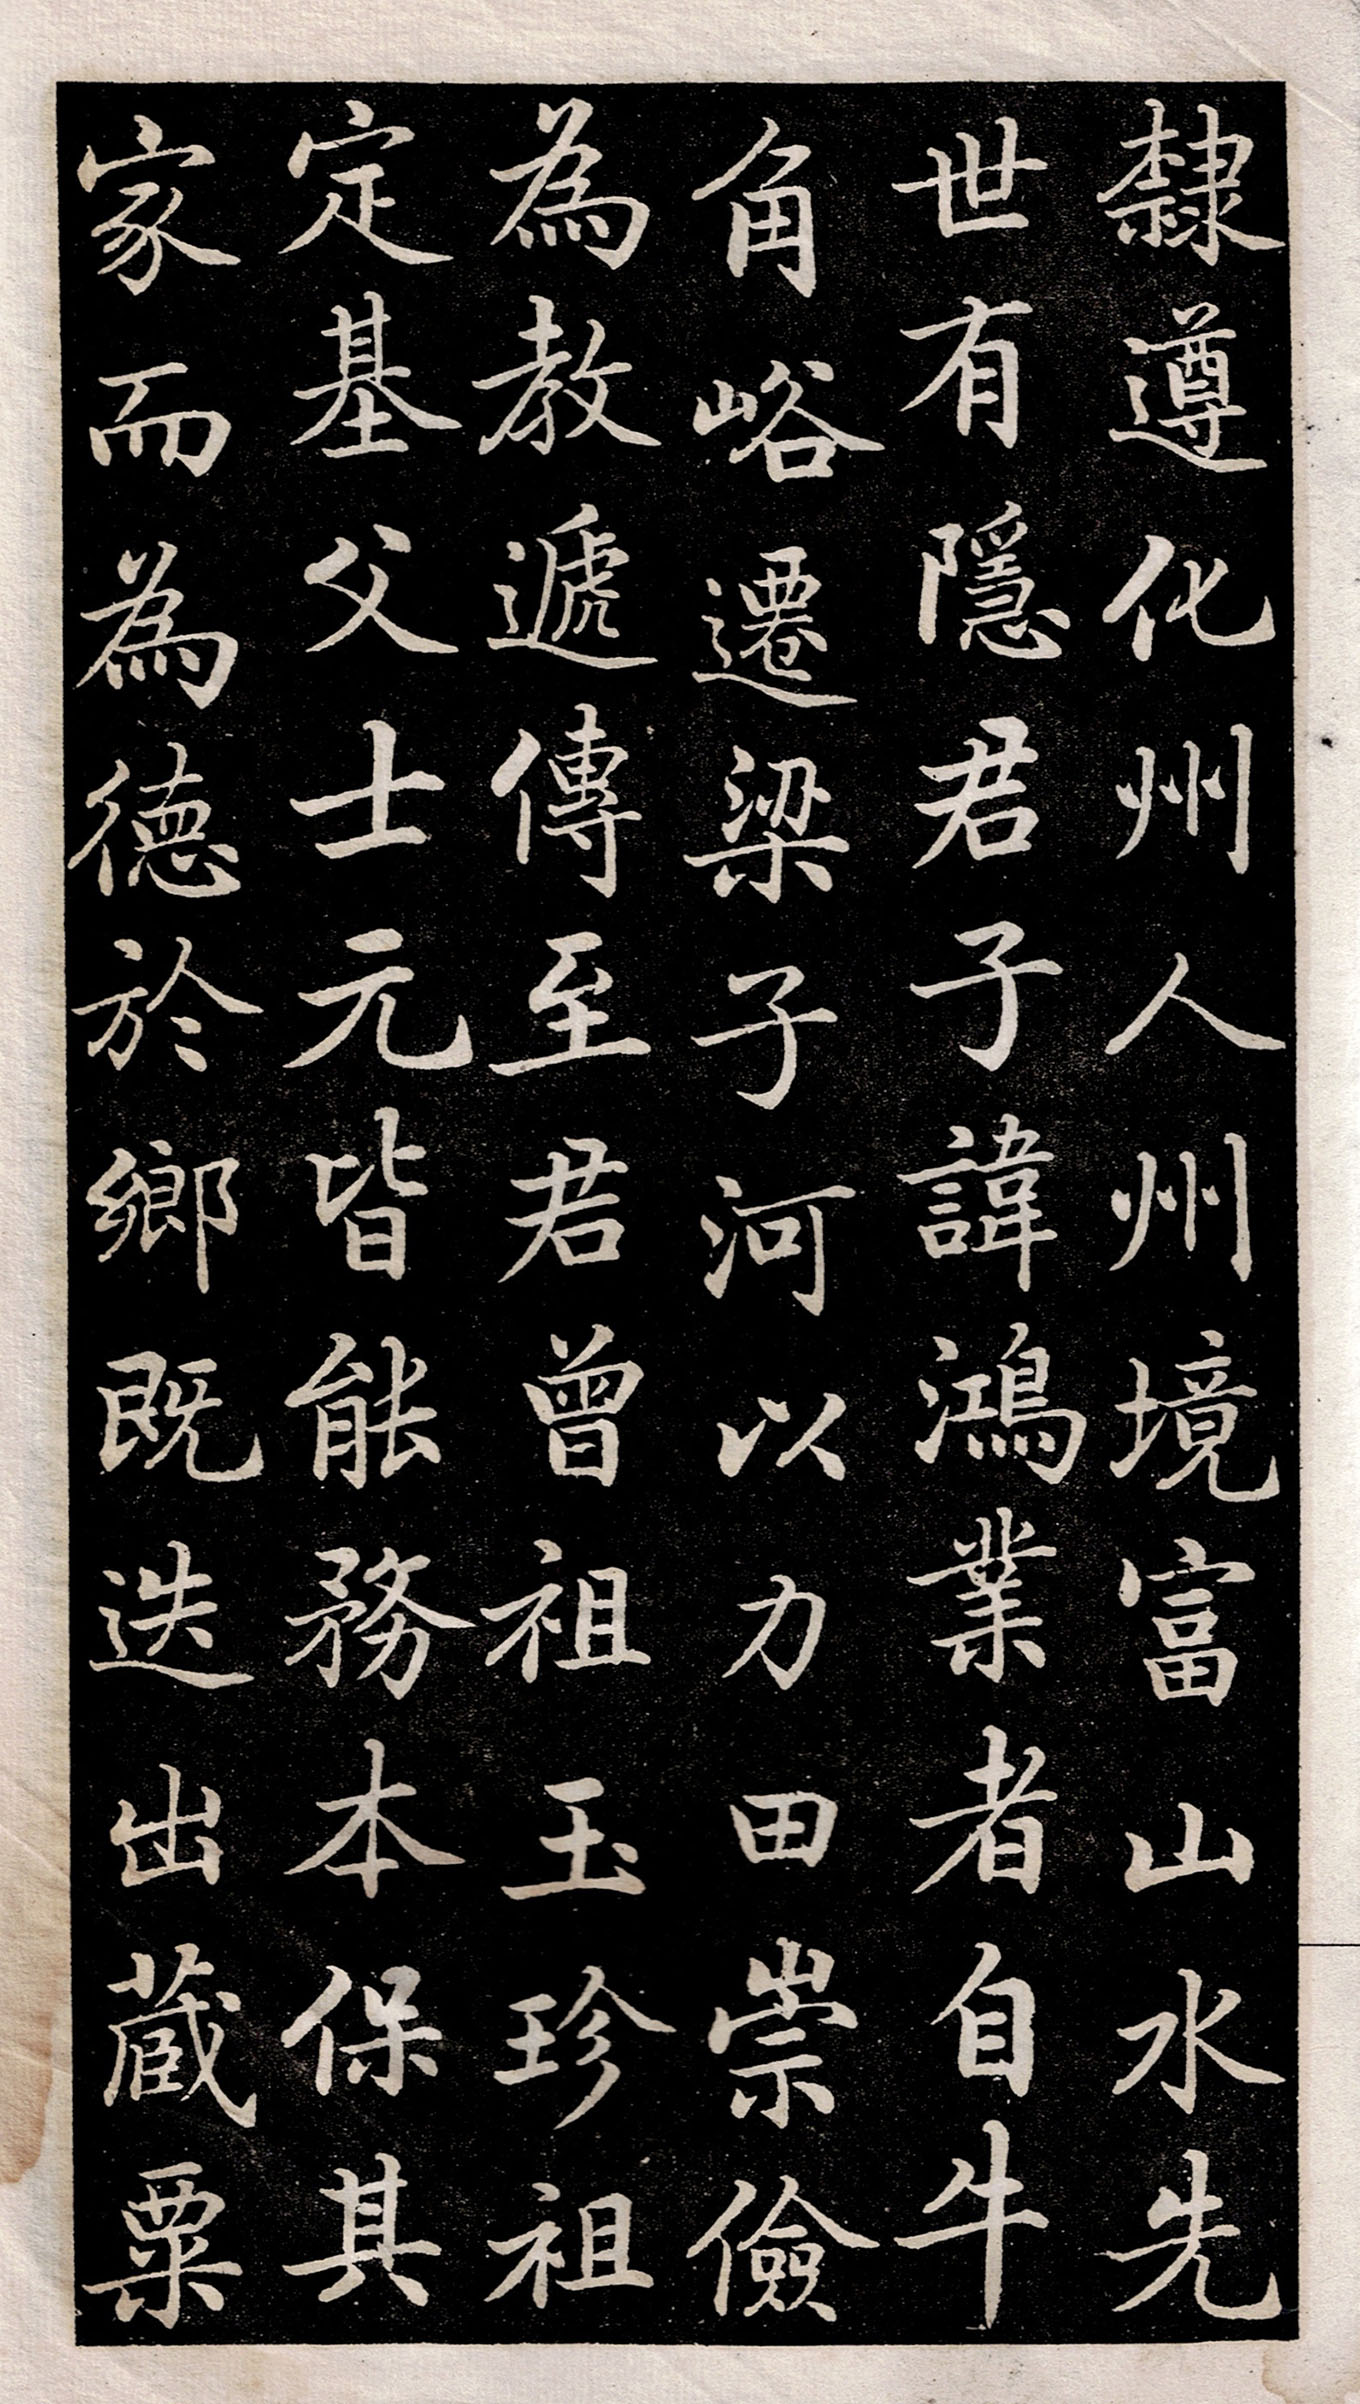 隸遵化州人州境富山水先
世有隱君子諱鴻業者自牛
角峪遷梁子河以力田崇儉
為教遞傳至君曾祖玉珍祖
定基父士元皆能務本保其
家而為德於鄉既迭出藏粟